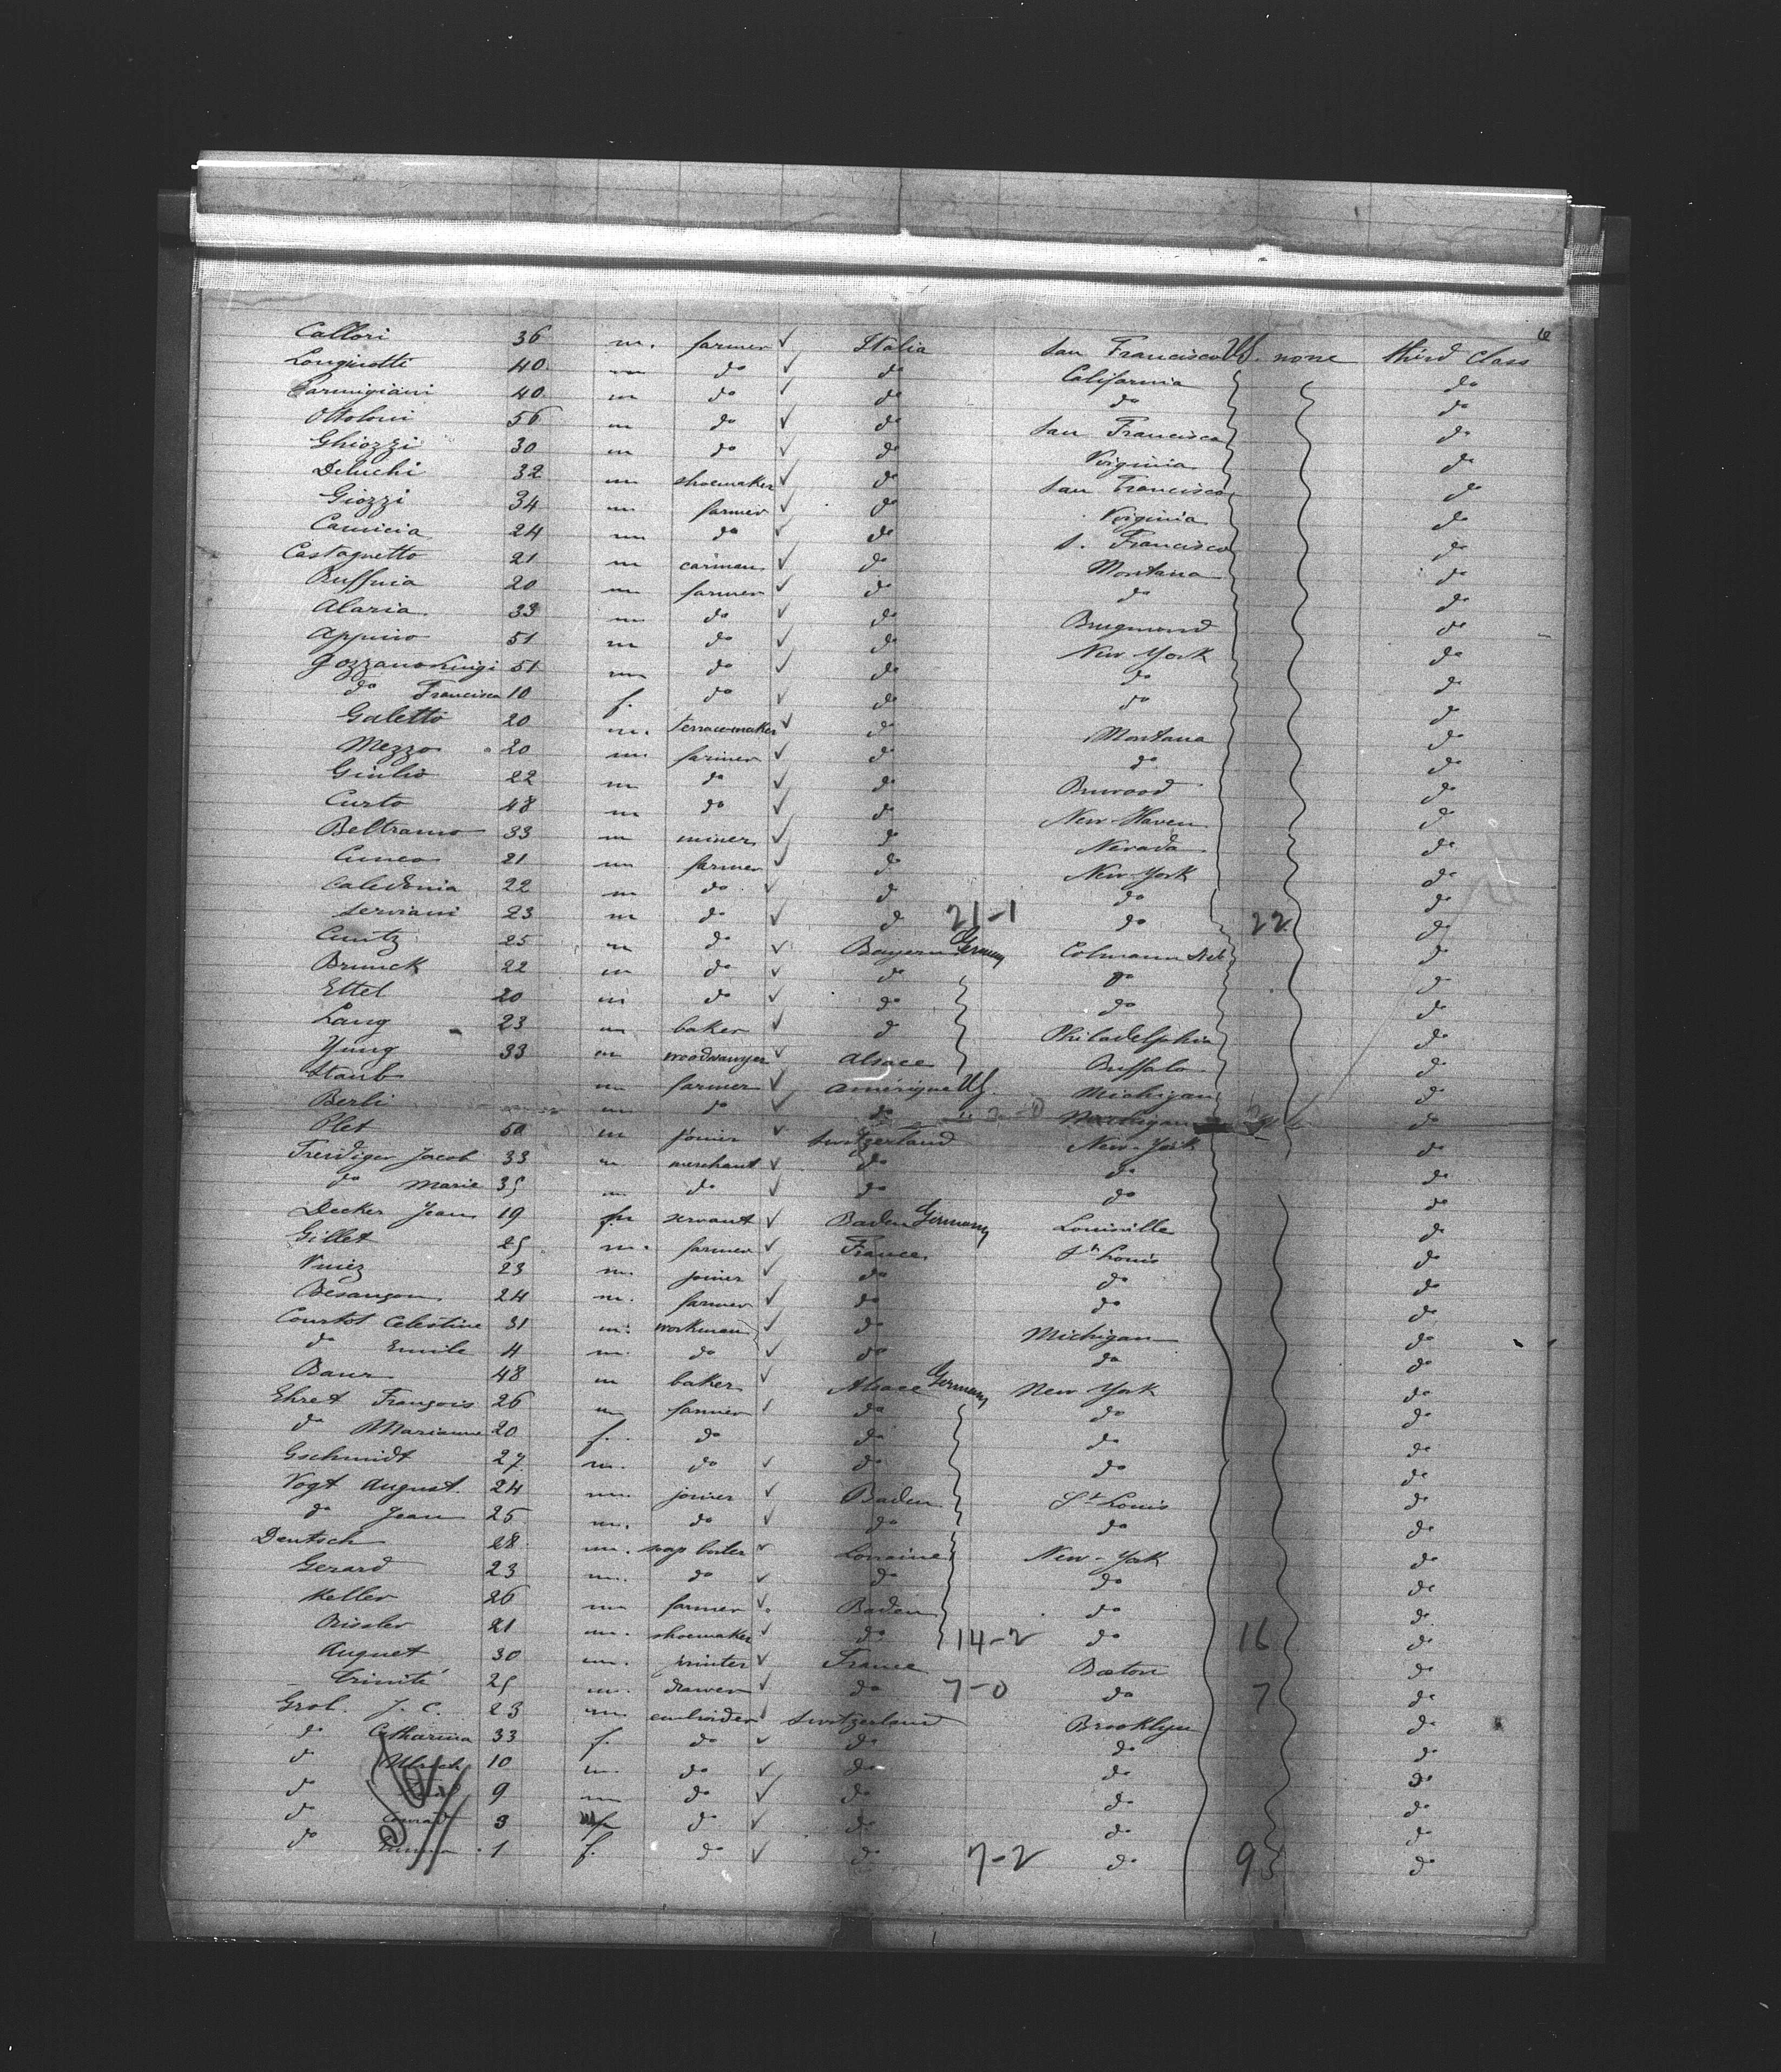 6
Callori 36 m. farmer ✓ Italia San Francisco US. none third Class
Longinotti 40 m do ✓ do California do
Parmigiani 40 m do ✓ do do do
Ottoloni 56 m do ✓ do San Francisco do
Ghiozzi 30 m do ✓ do Virginia do
Deluchi 32 m shoemaker ✓ do San Francisco do
Giozzi 34 m farmer ✓ do Virginia do
Camicia 24 m do ✓ do S. Francisco do
Castagnetto 21 m carman ✓ do Montana do
Ruffinia 20 m farmer ✓ do do do
Alaria 33 m do ✓ do do
Appino 51 m do ✓ do New York do
Gozzano Luigi 51 m do ✓ do do do
do Francisca 10 f. do ✓ do do do
Galetto 20 m. terracemaker ✓ do Montana do
Mezzo 20 m farmer ✓ do do do
Giulio 22 m do ✓ do do
Curto 48 m do ✓ do New-Haven do
Beltramo 33 m miner ✓ do Nevada do
Cuneo 21 m farmer ✓ do New-York do
Caledonia 22 m do ✓ do do do
Serviani 23 m do ✓ do 21-1 do 22 do
Cuntz 25 m do ✓ Bayern Germany Colmann Neb do
Brunck 22 m do ✓ do do do
Ettel 20 m do ✓ do do do
Lang 23 m baker ✓ do Philadelphia do
Yung 33 m ✓ Alsace Buffalo do
Staub m farmer ✓ Amérique US. Michigan do
Berli m do ✓ do Michigan do
Plet 50 m joiner ✓ Switzerland New-York do
Freidiger Jacob 33 m merchant ✓ do do do
do Marie 35 m do ✓ do do do
Decker Jean 19 servant ✓ Baden Germany Louisville do
Gillet 25 m. farmer ✓ France St Louis do
23 m. joiner ✓ do do do
Besançon 24 m. farmer ✓ do do do
Courtot Celestine 31 m. workman ✓ do Michigan do
do Emile 4 m. do ✓ do do do
Baur 48 m baker ✓ Alsace Germany New York do
Ehret François 26 m farmer ✓ do do do
do Marianne 20 f. do do do do
Gschmidt 27 m. do ✓ do do do
Vogt August. 24 m. joiner ✓ Baden St Louis do
do Jean 25 m. do ✓ do do do
Deutsch 28 m. soap boiler ✓ Lorraine New-York do
Gerard 23 m. do ✓ do do do
Keller 26 m farmer ✓ Baden do do
21 m. shoemaker ✓ do 14-2 do 16 do
Auguet 30 m. ✓ France Boston do
Trinité 25 m. drawer ✓ do 7-0 do 7 do
Grob. J. C. 23 m. ✓ Switzerland Brooklyn do
do Catharina 33 f. do ✓ do do do
do Ulrich 10 m. do ✓ do do do
do 9 m do ✓ do do do
do Conrad 3 do ✓ do do do
do 1 f. do ✓ do 7-2 do 9 do